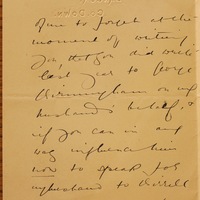 me to forget at the
moment of writing
you, that you did write
last year to George
Birmingham on my
husband's behalf, &
if you can in any
way influence him
now to speak for
my husband to